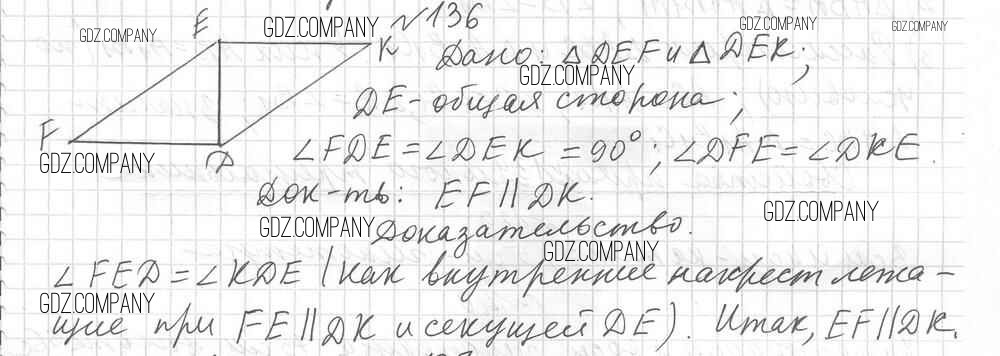 GDZ.COMPANY E GDZ.COMPANY №136 GDZ.COMPANY GDZ.COMPANY
K Дано: △DEF и △DEK;
GDZ.COMPANY
DE - общая сторона;
F ∠FDE = ∠DEK = 90°; ∠DFE = ∠DKE.
GDZ.COMPANY D
Док-ть: EF || DK.
GDZ.COMPANY
GDZ.COMPANY Доказательство.
GDZ.COMPANY
∠FED = ∠KDE (как внутренние накрест лежа-
GDZ.COMPANY
щие при FE || DK и секущей DE). Итак, EF || DK.